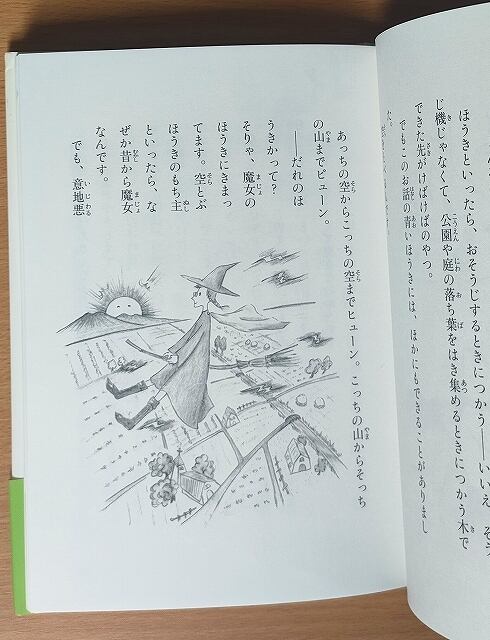 ほうきといったら、おそうじするときにつかう――いいえ、そう
じ機じゃなくて、公園や庭の落ち葉をはき集めるときにつかう木で
できた先がけばけばのやつ。
でもこのお話の青いほうきには、ほかにもできることがありまし
た。
あっちの空からこっちの空までヒューン。こっちの山からそっち
の山までビューン。
――だれのほ
うきかって?
そりゃ、魔女の
ほうきにきまっ
てます。空とぶ
ほうきのもち主
といったら、な
ぜか昔から魔女
なんです。
でも、意地悪